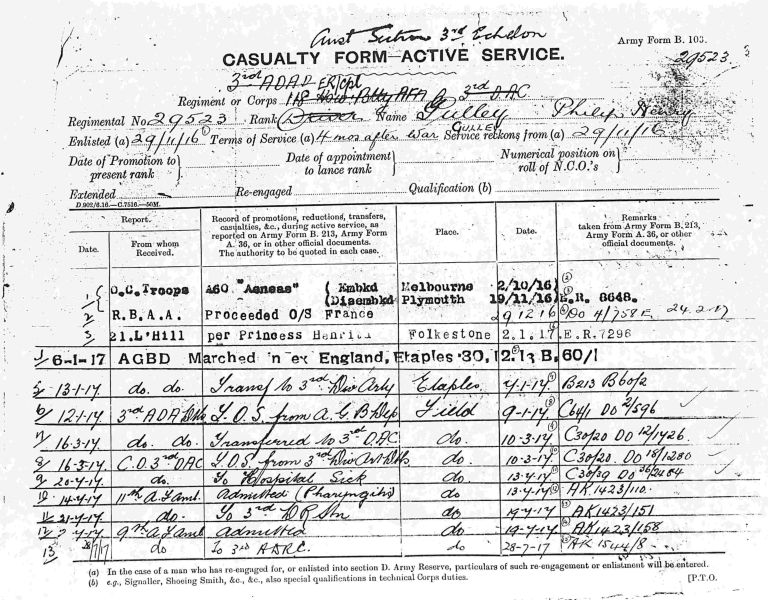 Aust Section 3rd Echelon
Army Form B. 103.
CASUALTY FORM—ACTIVE SERVICE.
29523
3rd ADAD ER/Cpl
Regiment or Corps 118 How. Batty AFA 3rd DAC
Regimental No. 29523 Rank Driver Name Gulley Philip Henry
GULLEY
Enlisted (a) 29/11/16 Terms of Service (a) 4 mos after War Service reckons from (a) 29/11/16
Date of Promotion to present rank } Date of appointment to lance rank } Numerical position on roll of N.C.O.'s }
Extended Re-engaged Qualification (b)
D 902/6.16.—C.7516.—50M.
Report. Record of promotions, reductions, transfers, casualties, &c., during active service, as reported on Army Form B. 213, Army Form A. 36, or in other official documents. The authority to be quoted in each case. Place. Date. Remarks taken from Army Form B. 213, Army Form A. 36, or other official documents.
Date. From whom Received.
1 O.C. Troops A60 "Aeneas" { Embkd Melbourne 2/10/16
{ Disembkd Plymouth 19/11/16 E.R. 8648.
2 R.B.A.A. Proceeded O/S France 29 12 16 DO 4/758E 24.2.17
3 21.L'Hill per Princess Henrietta Folkestone 2.1.17. E.R.7296
6-1-17 AGBD Marched in ex England, Etaples 30.12. 13 B.60/1
5 13-1-17 do. do. Transf to 3rd Div Arty Etaples 7-1-17 B213 B60/2
6 12-1-17 3rd ADA T.O.S. from A.G.B.Dep Field 9-1-17 DO 2/596
7 16-3-17 do. do. Transferred to 3rd D.A.C. do. 10-3-17 C30/20 DO 12/1426
8 16-3-17 C.O. 3rd DAC T.O.S. from 3rd Div Art do 10-3-17 C30/20 DO 18/1280
9 20-4-17 do. To Hospital Sick do 13-4-17 C30/39 DO 36/2484
10 14-4-17 11th A.F.Amb. Admitted (Pharyngitis) do 13-4-17 AK1423/110.
11 21-4-17 do. To 3rd D R Stn do 19-4-17 AK1423/151
12 9th A.F.Amb admitted do 19-4-17 AK1423/158
13 28/7/17 do To 3rd A.D.R.C. do 28-7-17 AK 1544/8
(a) In the case of a man who has re-engaged for, or enlisted into section D. Army Reserve, particulars of such re-engagement or enlistment will be entered.
(b) e.g., Signaller, Shoeing Smith, &c., &c., also special qualifications in technical Corps duties. [P.T.O.